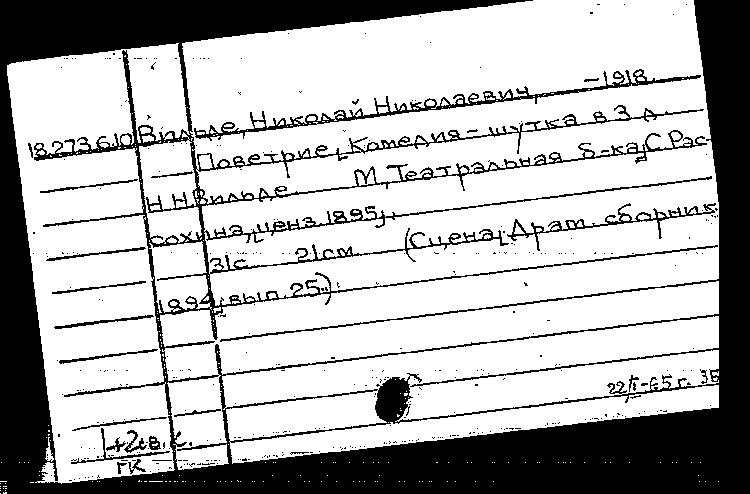 18.273.610 Вильде, Николай Николаевич, -1918.
Поветрие; Комедия-шутка в 3 д.
Н Н Вильде. М, Театральная б-ка, С Рас-
сохина, ценз. 1895,.
31с 21см (Сцена; Драт. сборник
1894, вып. 25.)
22/I-65г. ЗБ
ГК